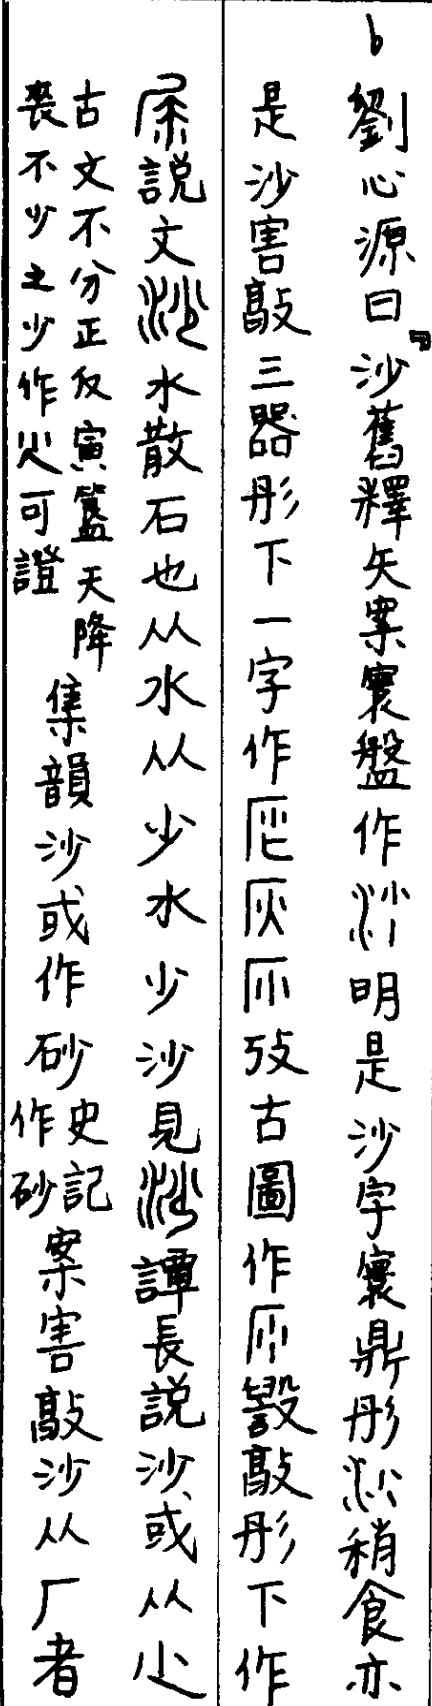 b
劉心源曰『沙舊釋矢案寰盤作明是沙字寰鼎彤稍食亦
是沙害敲三器彤下一字作攷古圖作敲彤下作
㞕説文沙水散石也从水从少水少沙見譚長説沙或从尐
古文不分正反寅簋天降
喪不少之少作可證
集韻沙或作砂
史記
作砂
案害敲沙从厂者